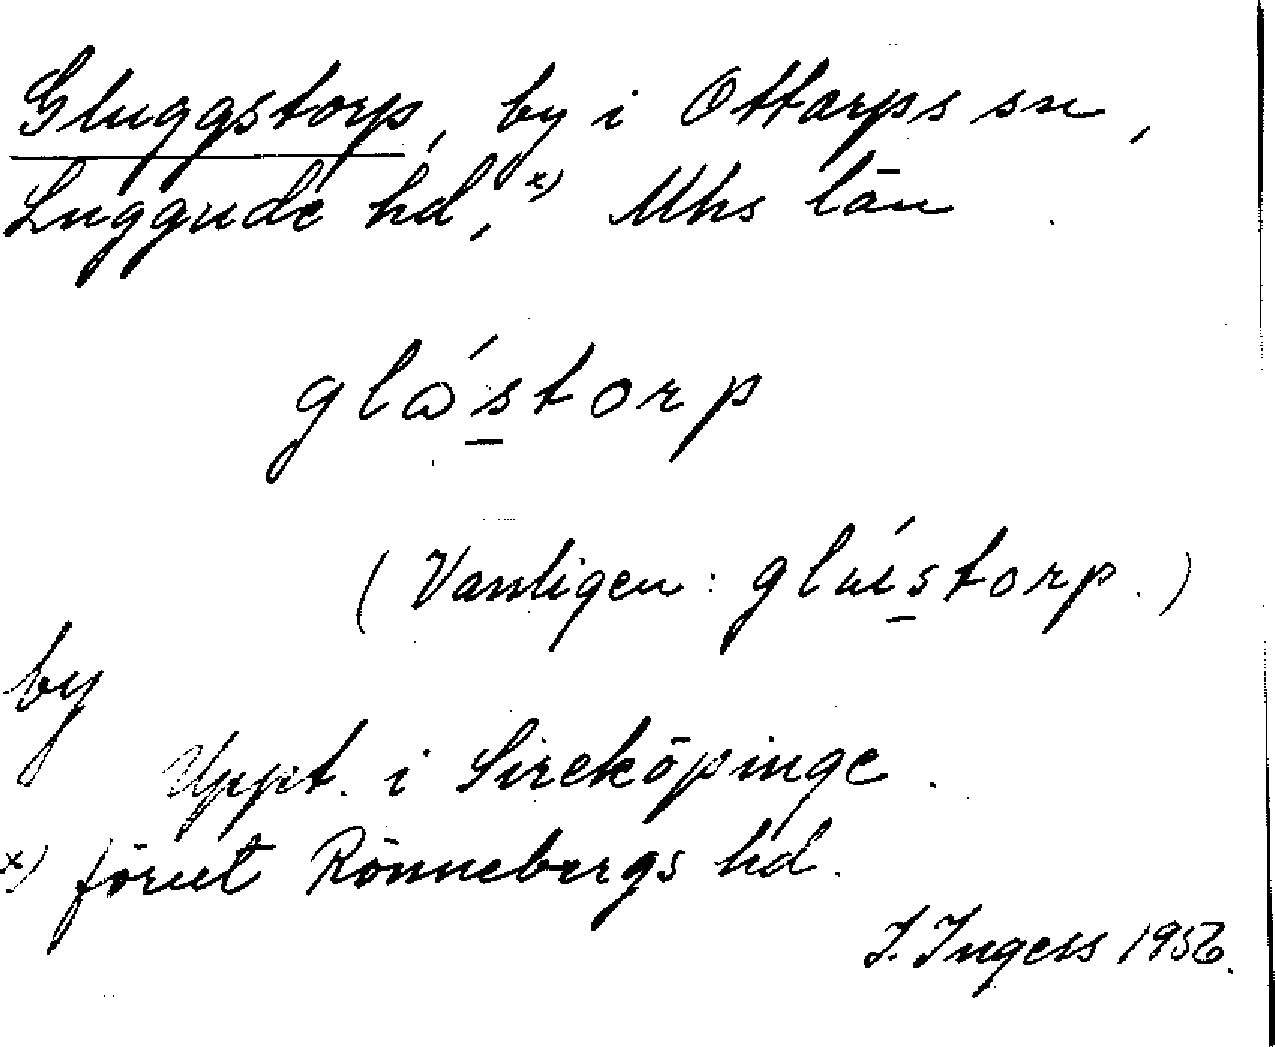 Gluggstorp, by i Ottarps sn,
Luggude hd,x) Mhs län
glǻstorp
(Vanligen: gluistorp.)
by
Uppt. i Sireköpinge.
x) förut Rönnebergs hd.
I. Ingers 1956.